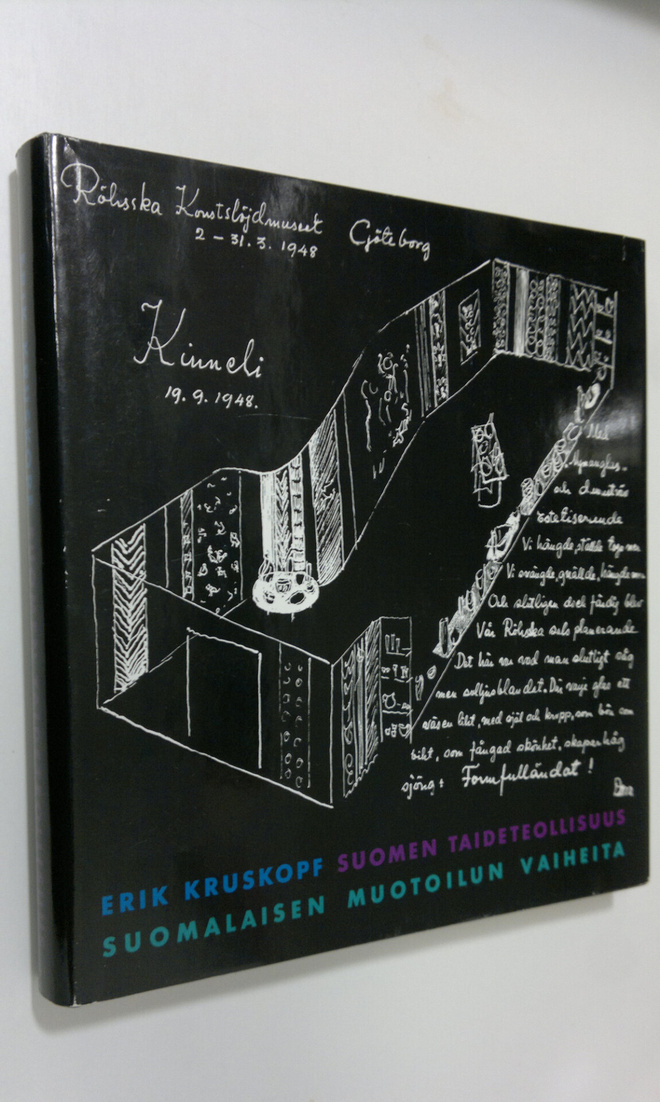 Röhsska Konstslöjdmuseet Göteborg
2 – 31. 3. 1948
Kinneli
19. 9. 1948.
Med
Nymanglas-
och
Esteliserende
Vi hängde, ställde
Vi svängde, gnällde, hängde
Och slutligen dock färdig blev
Vår Röhsska
Det här var vad man slutligt såg
men solljusblandet. Där varje glas ett
väsen likt, med själ och kropp, som bön om
bikt, som fångad skönhet, skaparhåg
sjöng: Formfulländat!
ERIK KRUSKOPF SUOMEN TAIDETEOLLISUUS
SUOMALAISEN MUOTOILUN VAIHEITA